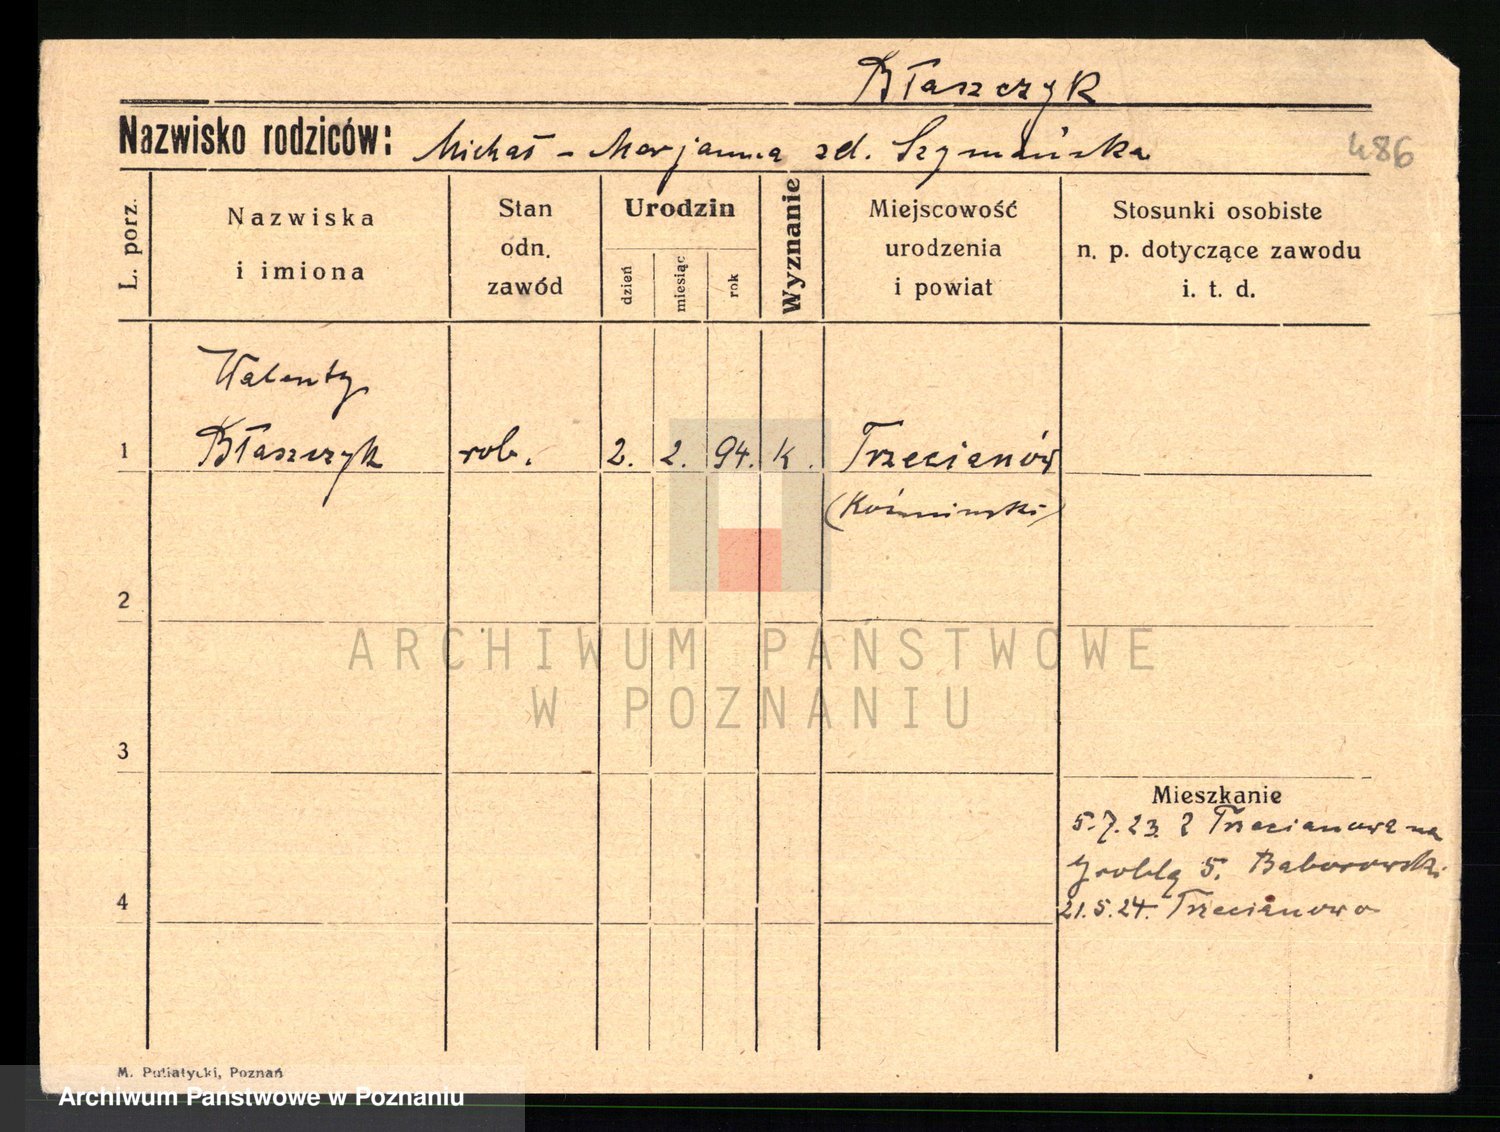 Błaszczyk
Nazwisko rodziców: Michał - Marjanna zd. Szymańska
486
L. porz.
Nazwiska
i imiona
Stan
odn.
zawód
Urodzin
dzień
miesiąc
rok
Wyznanie
Miejscowość
urodzenia
i powiat
Stosunki osobiste
n. p. dotyczące zawodu
i. t. d.
Walenty
1 Błaszczyk rob. 2. 2. 94. k. Trzecianów
(Koźmiński)
2
ARCHIWUM PAŃSTWOWE
W POZNANIU
3
Mieszkanie
5.7.23 z Trzecianowa na
Groblą 5. Baborowski
4
21.5.24. Trzecianowo
M. Putiatycki, Poznań
Archiwum Państwowe w Poznaniu